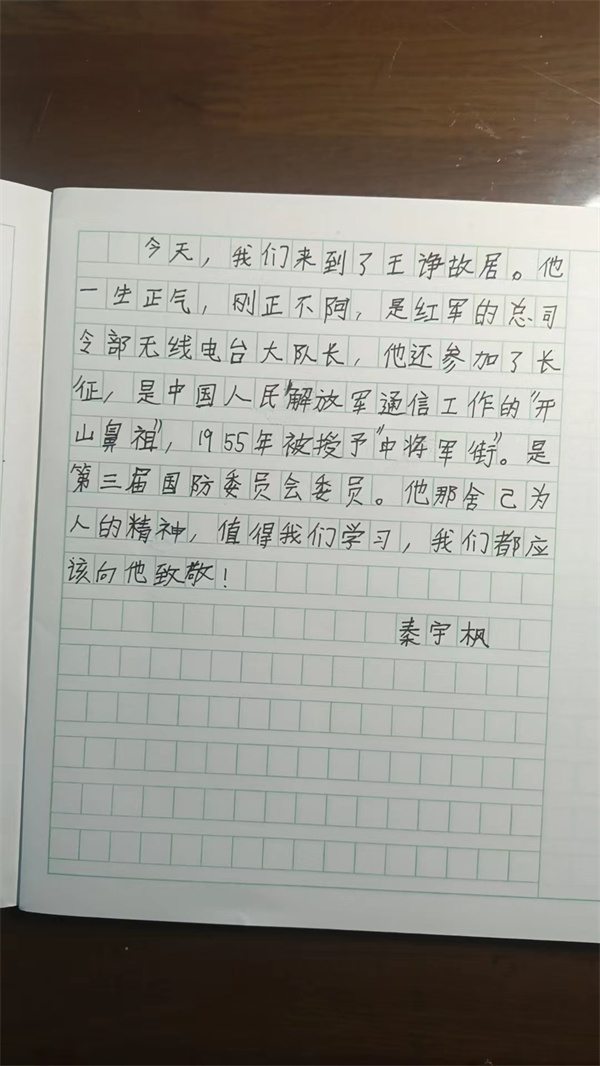 今天，我们来到了王诤故居。他
一生正气，刚正不阿，是红军的总司
令部无线电台大队长，他还参加了长
征，是中国人民“解放军通信工作的“开
山鼻祖”，1955年被授予“中将军街”。是
第三届国防委员会委员。他那舍己为
人的精神，值得我们学习，我们都应
该向他致敬！
秦宇枫